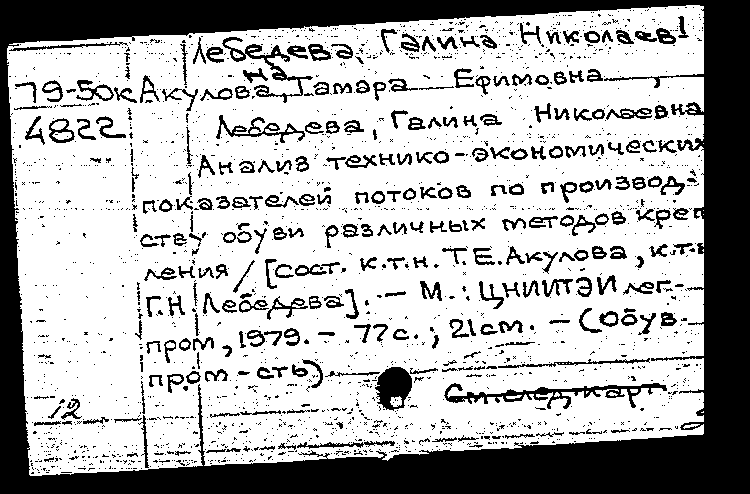 Лебедева, Галина Николаев
на
79-50к Акулова, Тамара Ефимовна,
4822 Лебедева, Галина Николаевна
Анализ технико-экономических
показателей потоков по производ-
ству обуви различных методов креп
ления / [сост. к.т.н. Т.Е. Акулова, к.т.н
Г.Н. Лебедева]. — М.: ЦНИИТЭИлег-
пром, 1979. — 77с.; 21см. — (Обув.
пром-сть)
См. след. карт.
12